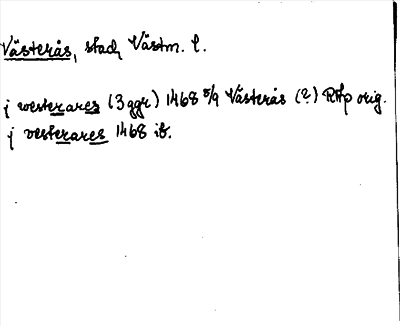 Västerås, stad, Västm. l.
j westerares (3 ggr) 1468 5/9 Västerås (?) RAp orig.
j vesterares 1468 ib.